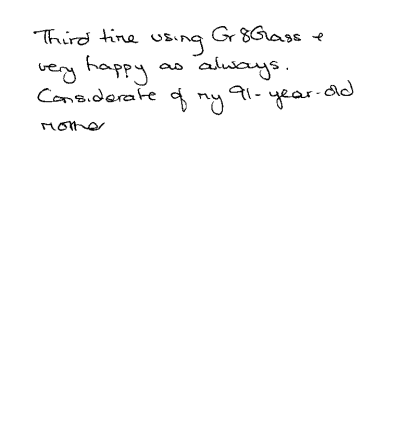 Third time using Gr8Glass +
very happy as always.
Considerate of my 91-year-old
mother